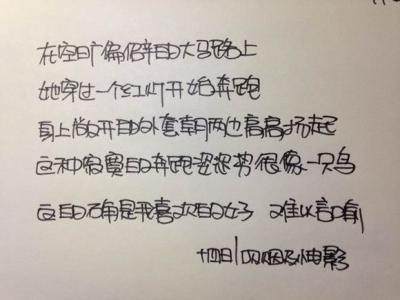 在空旷偏僻的大马路上
她穿过一个红灯开始奔跑
身上敞开的外套朝两边高高扬起
这种寂寞的奔跑姿势很像一只鸟
这的确是我喜欢的女子 难以言喻
电影